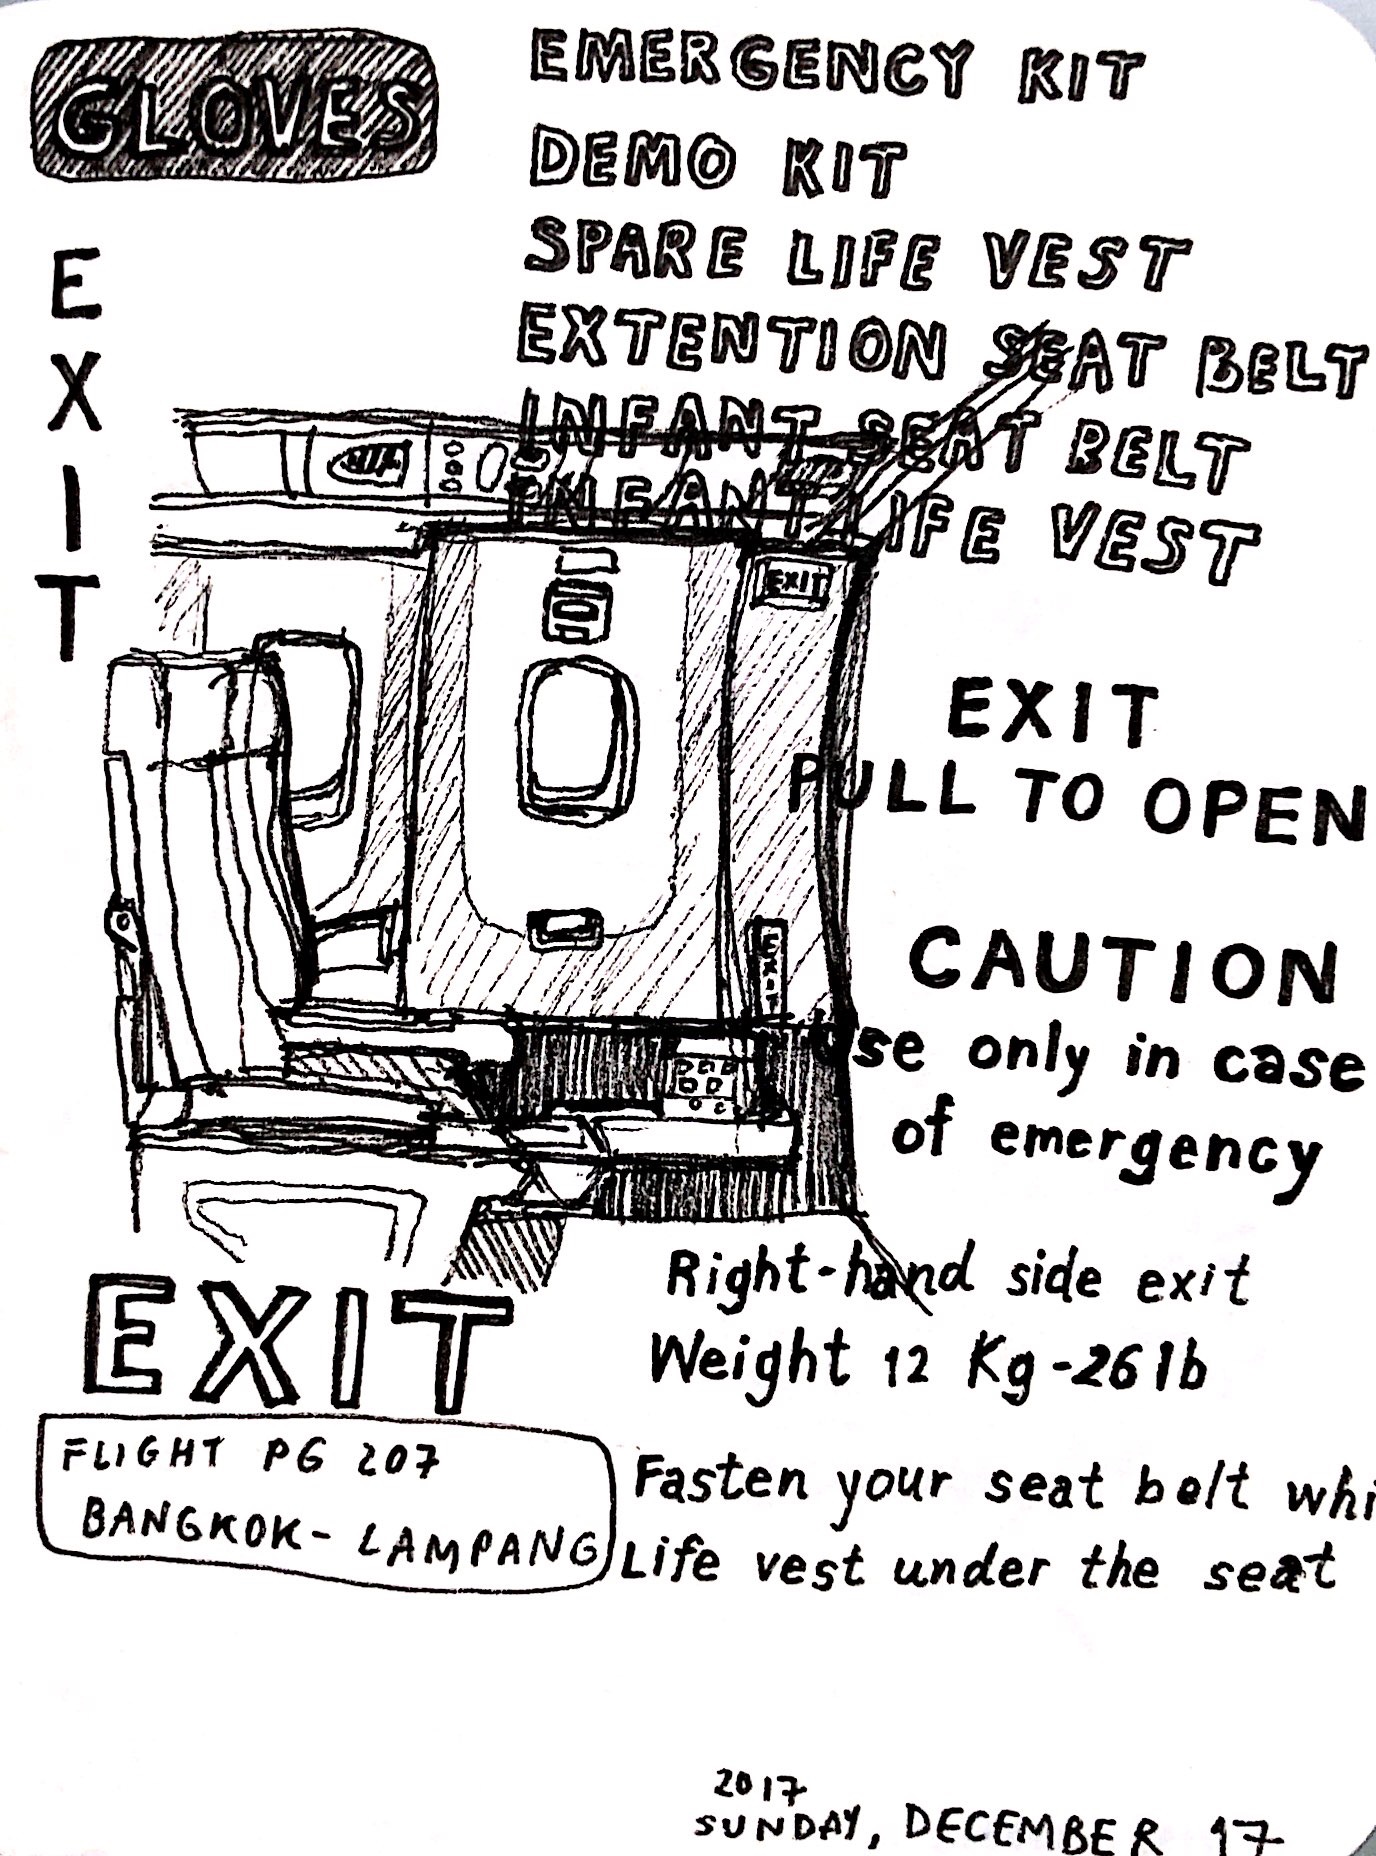 GLOVES
EMERGENCY KIT
DEMO KIT
SPARE LIFE VEST
EXTENTION SEAT BELT
INFANT SEAT BELT
INFANT LIFE VEST
EXIT
EXIT
EXIT
PULL TO OPEN
EXIT
CAUTION
Use only in case
of emergency
Right-hand side exit
Weight 12 Kg-26lb
EXIT
FLIGHT PG 207
BANGKOK- LAMPANG
Fasten your seat belt whi
Life vest under the seat
2017
SUNDAY, DECEMBER 17